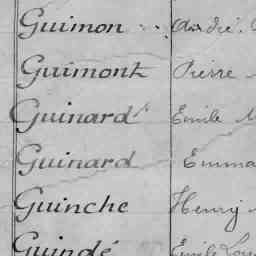 Guimon André
Guimont Pierre
Guinard Emile
Guinard Emma
Guinche Henry
Guindé Emile Lou